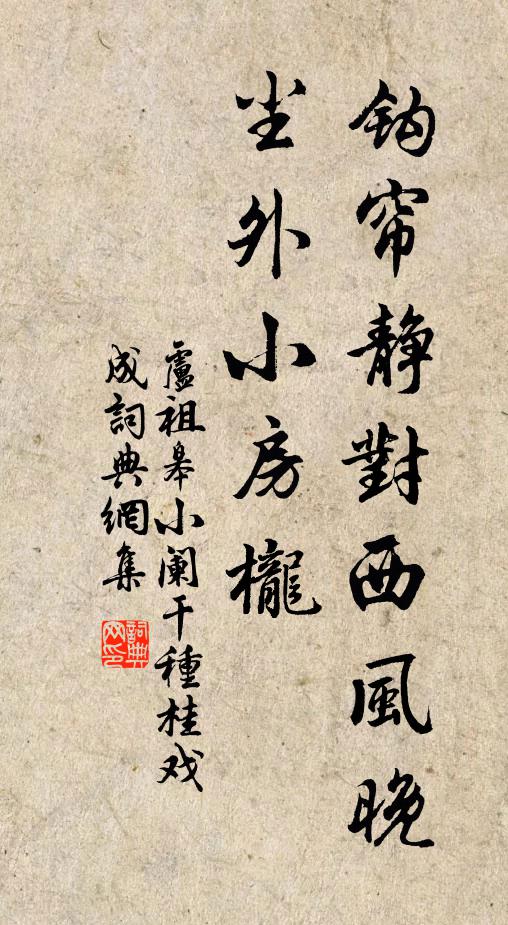 鈎帘静對西風晚
尘外小房櫳
盧祖皋小阑干種桂戏
成詞典網集
詞典网印